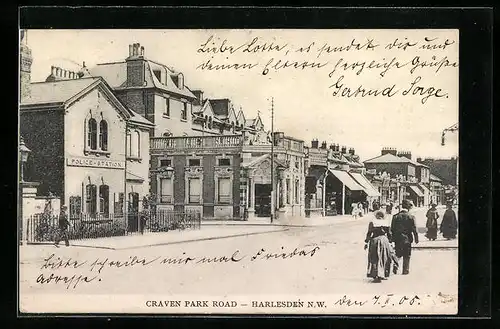 Liebe Lotte, es sendet dir und
deinen Eltern herzliche Grüße
Gertrud Sorge.
POLICE-STATION
Bitte schreibe mir mal Friedas
Adresse.
CRAVEN PARK ROAD – HARLESDEN N.W.
den 7. II. 05.